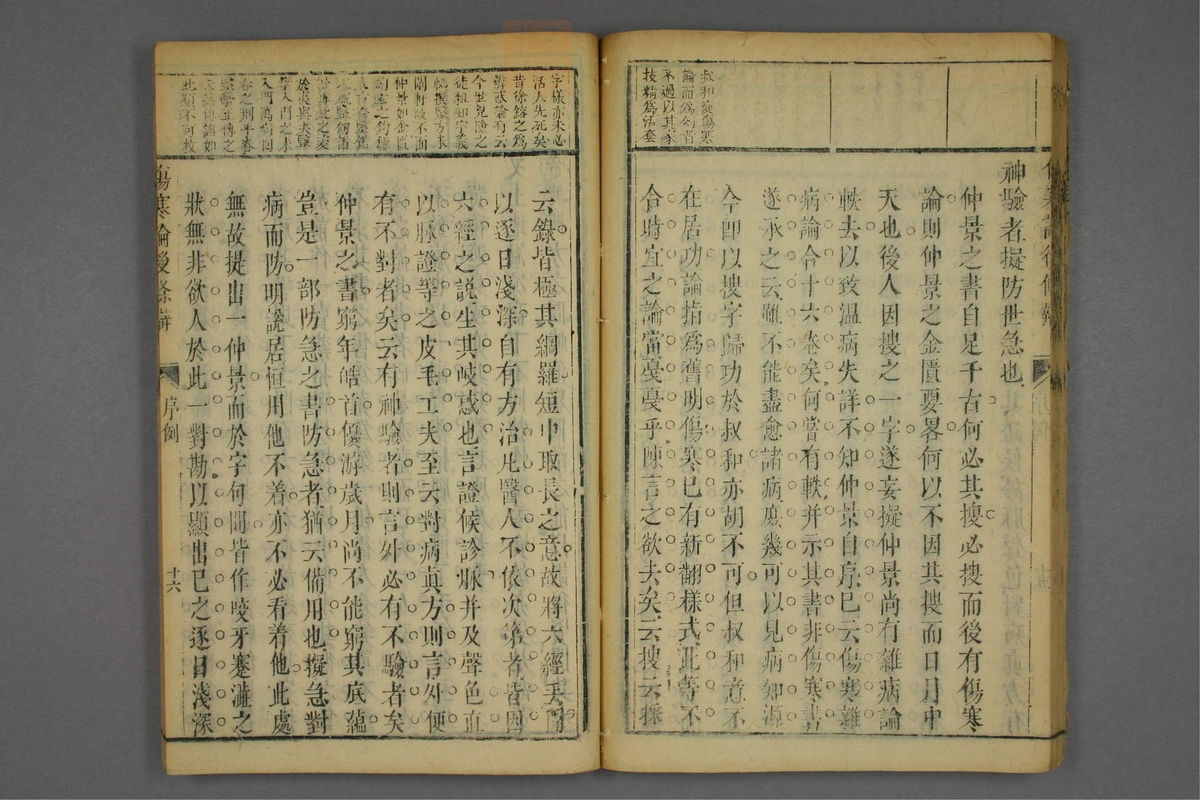 神驗者擬防世急也
仲景之書自足千古何必其搜必搜而後有傷寒
論則仲景之金匱要畧何以不因其搜而日月中
天也後人因搜之一字遂妄擬仲景尚有雜病論
軼去以致溫病失詳不知仲景自序已云傷寒雜
病論合十六卷矣何嘗有軼并示其書非傷寒書
遂承之云雖不能盡愈諸病庶幾可以見病知源
今即以搜字歸功於叔和亦胡不可但叔和意不
在居功論指爲舊明傷寒已有新翻樣式此等不
合時宜之論當戞戞乎陳言之欲去矣云搜云採
叔和變傷寒
論而爲例胃
不過以其家
技精爲活套
云錄皆極其綱羅短中取長之意故將六經丢開
以逐日淺深自有方治凡醫人不依次第者皆因
六經之説生其岐惑也言證候診脉并及聲色直
以脉證等之皮毛工夫至云對病眞方則言外便
有不對者矣云有神驗者則言外必有不驗者矣
仲景之書窮年皓首優游歲月尚不能窮其底蘊
豈是一部防急之書防急者猶云備用也擬急對
病而防明說居恒用他不着亦不必看着他此處
無故提出一仲景而於字句間皆作咬牙蹇澁之
狀無非欲人於此一對勘以顯出已之逐日淺深
字樣亦未必
活人先死矣
昔徐鎔之爲
辨惑論有云
今世兒醫之
徒粗知字義
傷寒論後條辨
序例
十六